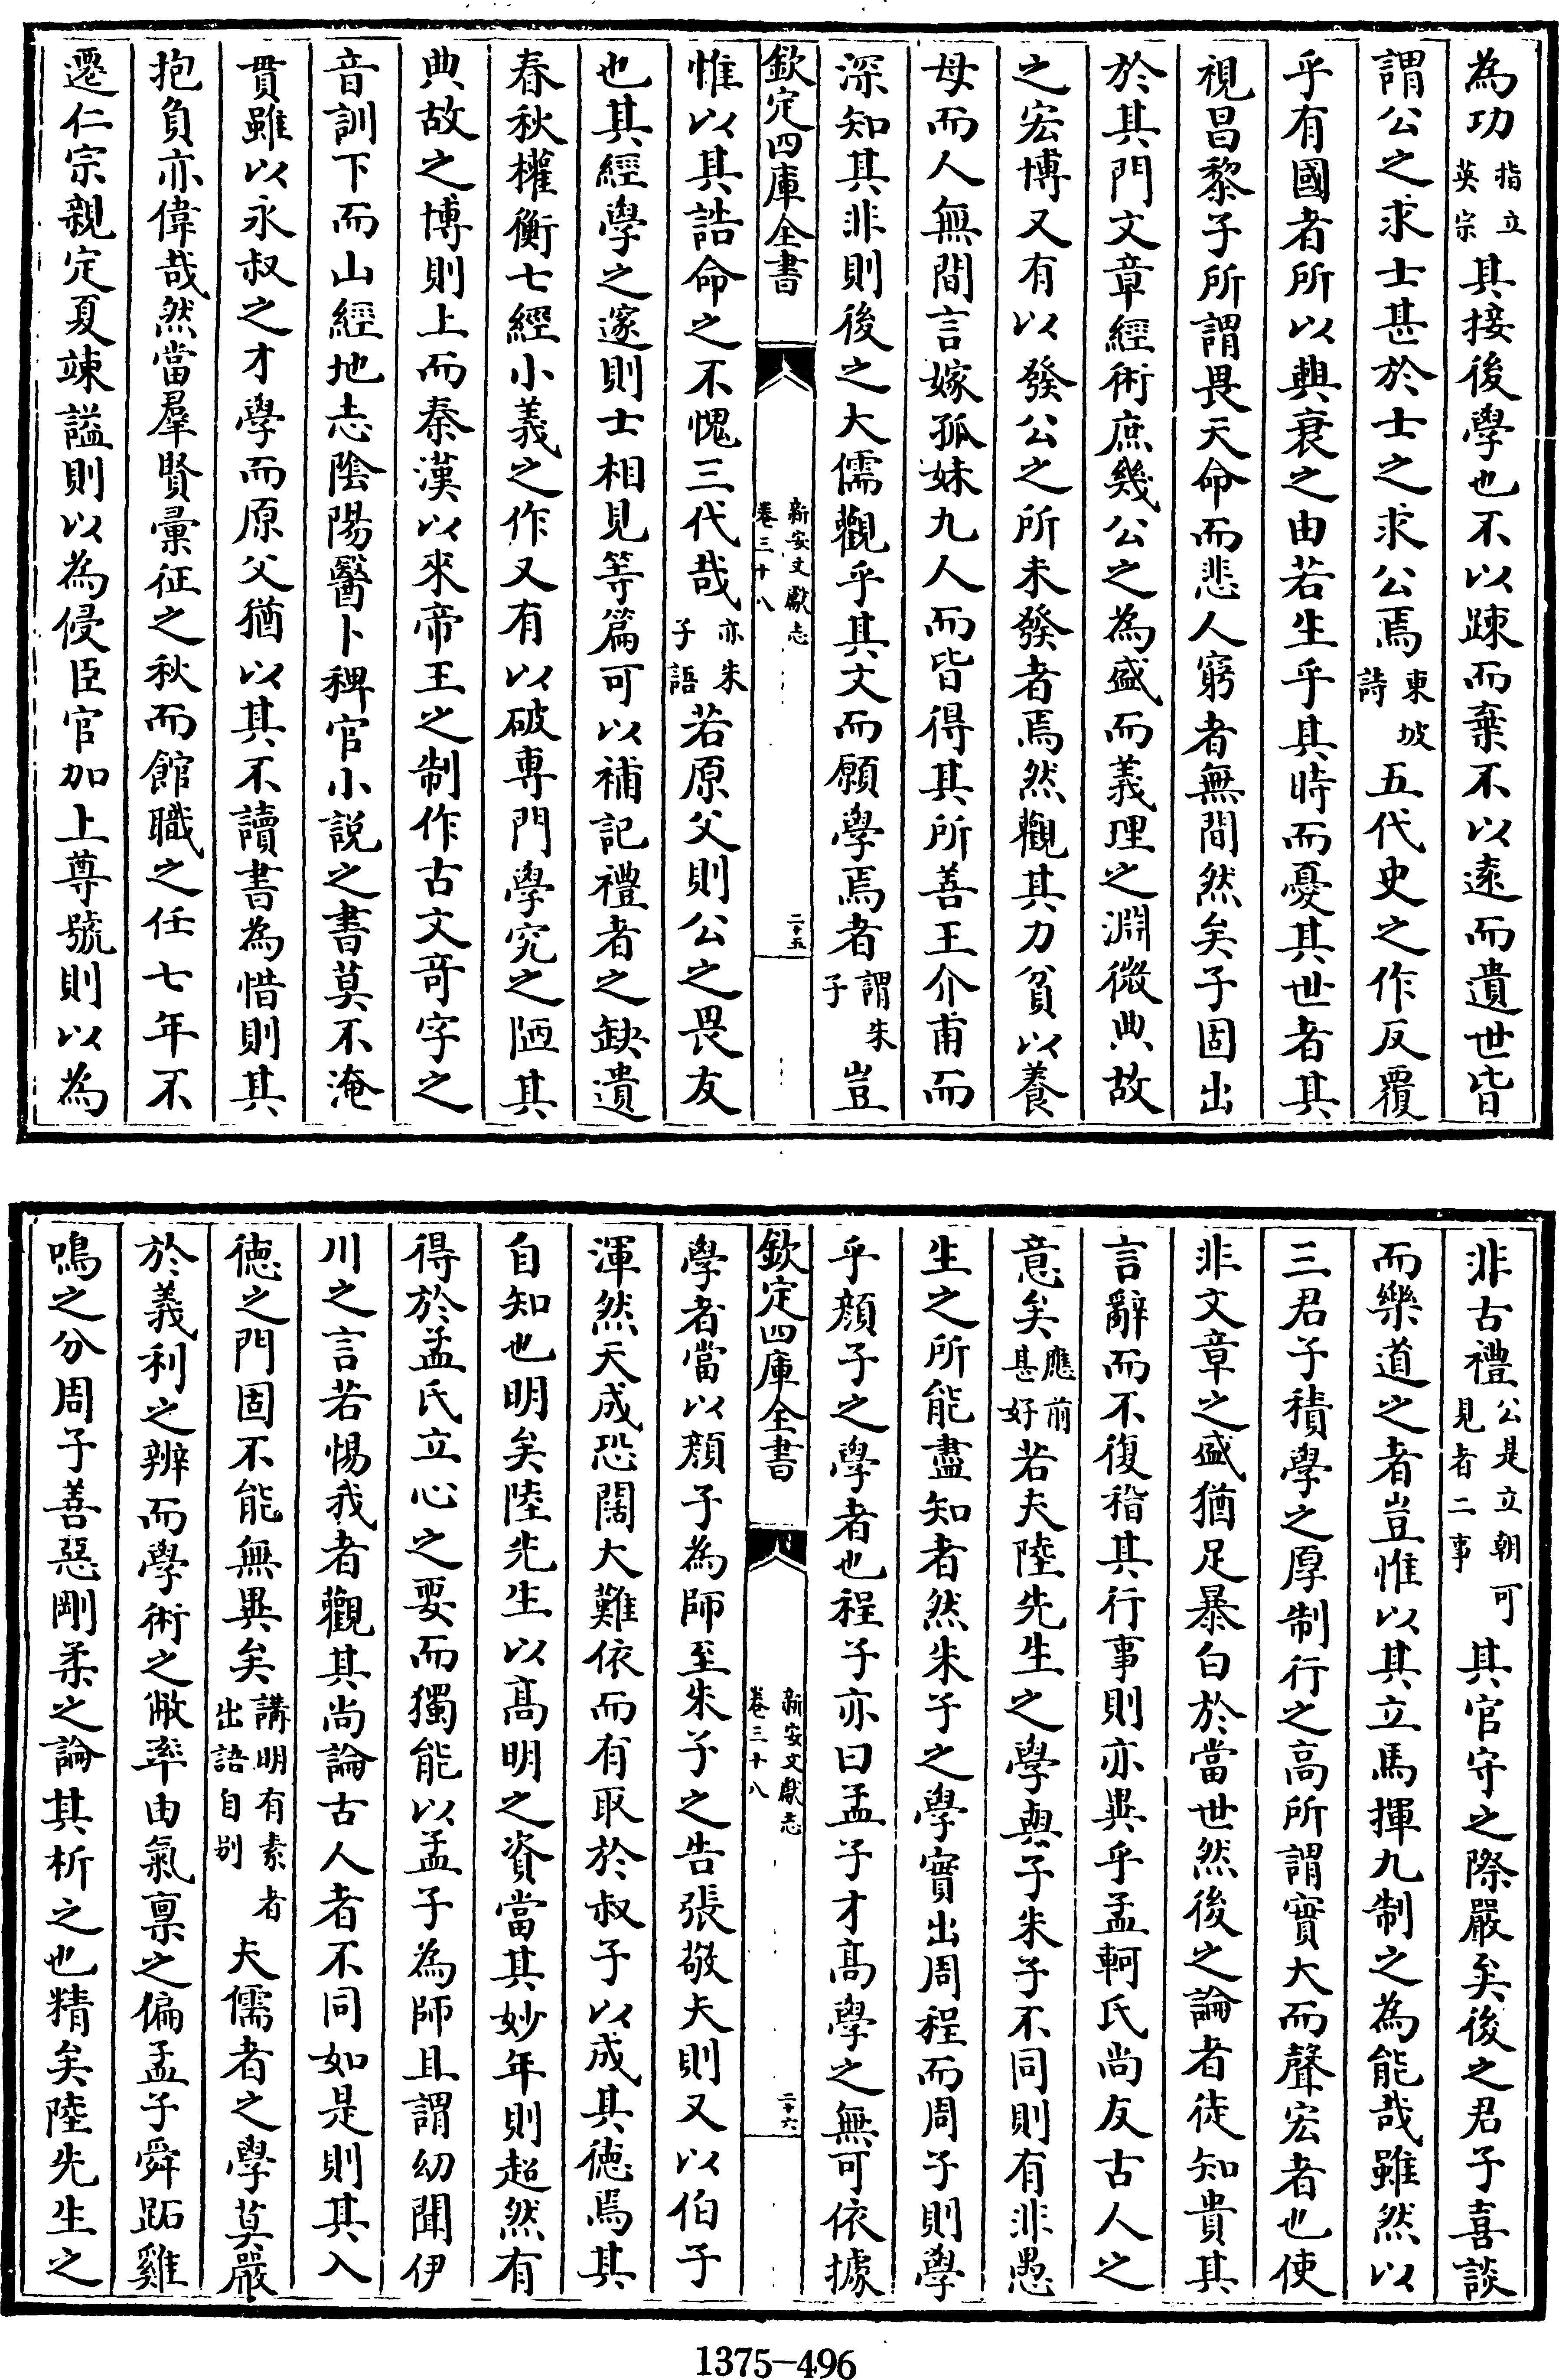 為功指立英宗其接後學也不以踈而棄不以逺而遺世皆
謂公之求士甚於士之求公焉東坡詩五代史之作反覆
乎有國者所以興衰之由若生乎其時而憂其世者其
視昌黎子所謂畏天命而悲人窮者無間然矣子固出
於其門文章經術庶幾公之為盛而義理之淵微典故
之宏博又有以發公之所未發者焉然觀其力貧以養
母而人無間言嫁孤妹九人而皆得其所善王介甫而
深知其非則後之大儒觀乎其文而願學焉者謂朱子豈
欽定四庫全書
新安文獻志
卷三十八
二十五
惟以其誥命之不愧三代哉亦朱子語若原父則公之畏友
也其經學之邃則士相見等篇可以補記禮者之缺遺
春秋權衡七經小義之作又有以破専門學究之陋其
典故之博則上而秦漢以來帝王之制作古文奇字之
音訓下而山經地志隂陽醫卜稗官小説之書莫不淹
貫雖以永叔之才學而原父猶以其不讀書為惜則其
抱負亦偉哉然當羣賢彙征之秋而館職之任七年不
遷仁宗親定夏竦謚則以為侵臣官加上尊號則以為
非古禮公是立朝可見者二事其官守之際嚴矣後之君子喜談
而樂道之者豈惟以其立馬揮九制之為能哉雖然以
三君子積學之厚制行之高所謂實大而聲宏者也使
非文章之盛猶足暴白於當世然後之論者徒知貴其
言辭而不復稽其行事則亦異乎孟軻氏尚友古人之
意矣應前甚好若夫陸先生之學與子朱子不同則有非愚
生之所能盡知者然朱子之學實出周程而周子則學
乎顔子之學者也程子亦曰孟子才髙學之無可依據
欽定四庫全書
新安文獻志
卷三十八
二十六
學者當以顔子為師至朱子之告張敬夫則又以伯子
渾然天成恐闊大難依而有取於叔子以成其徳焉其
自知也明矣陸先生以髙明之資當其妙年則超然有
得於孟氏立心之要而獨能以孟子為師且謂幼聞伊
川之言若惕我者觀其尚論古人者不同如是則其入
徳之門固不能無異矣講明有素者出語自别夫儒者之學莫嚴
於義利之辨而學術之敝率由氣禀之偏孟子舜跖雞
鳴之分周子善惡剛柔之論其析之也精矣陸先生之
1375-496